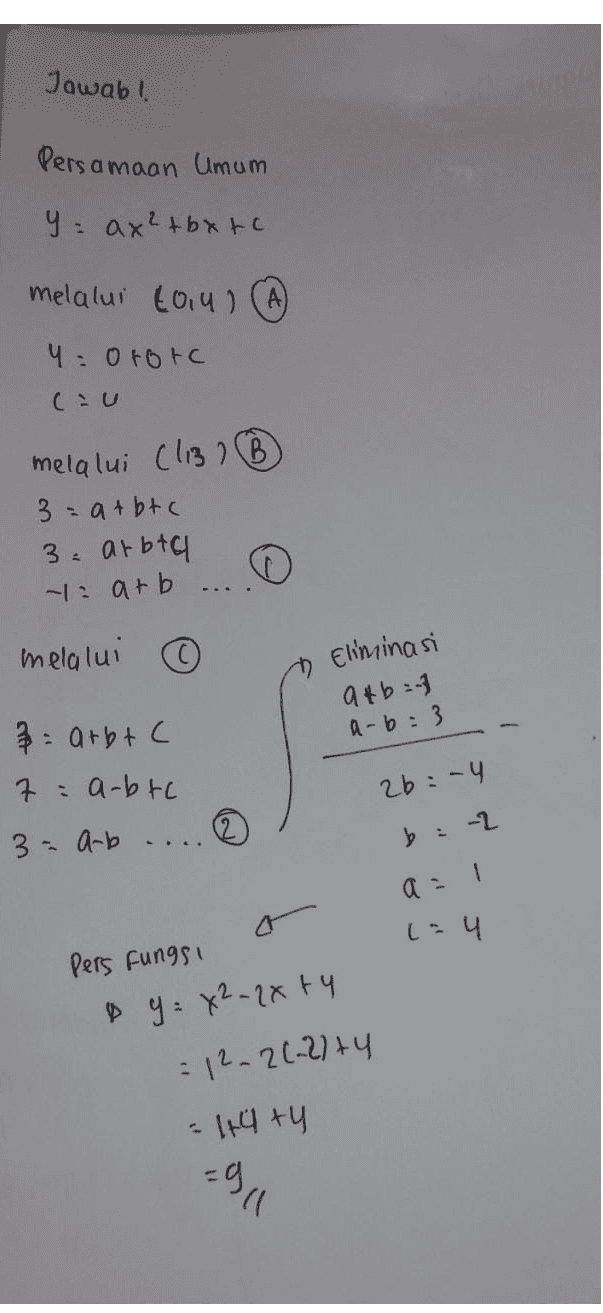 Jawab !
Persamaan Umum
y = ax² + bx + c
melalui (0,4) Ⓐ
4 = 0 + 0 + c
c = 4
melalui (1,3) Ⓑ
3 = a + b + c
3 = a + b + 4
-1 = a + b .... ①
melalui Ⓒ
7 = a + b + c
7 = a - b + c
3 = a - b .... ②
Eliminasi
a + b = -1
a - b = 3
2b = -4
b = -2
a = 1
c = 4
Pers Fungsi
y = x² - 2x + 4
= 1² - 2(-2) + 4
= 1 + 4 + 4
= 9 //